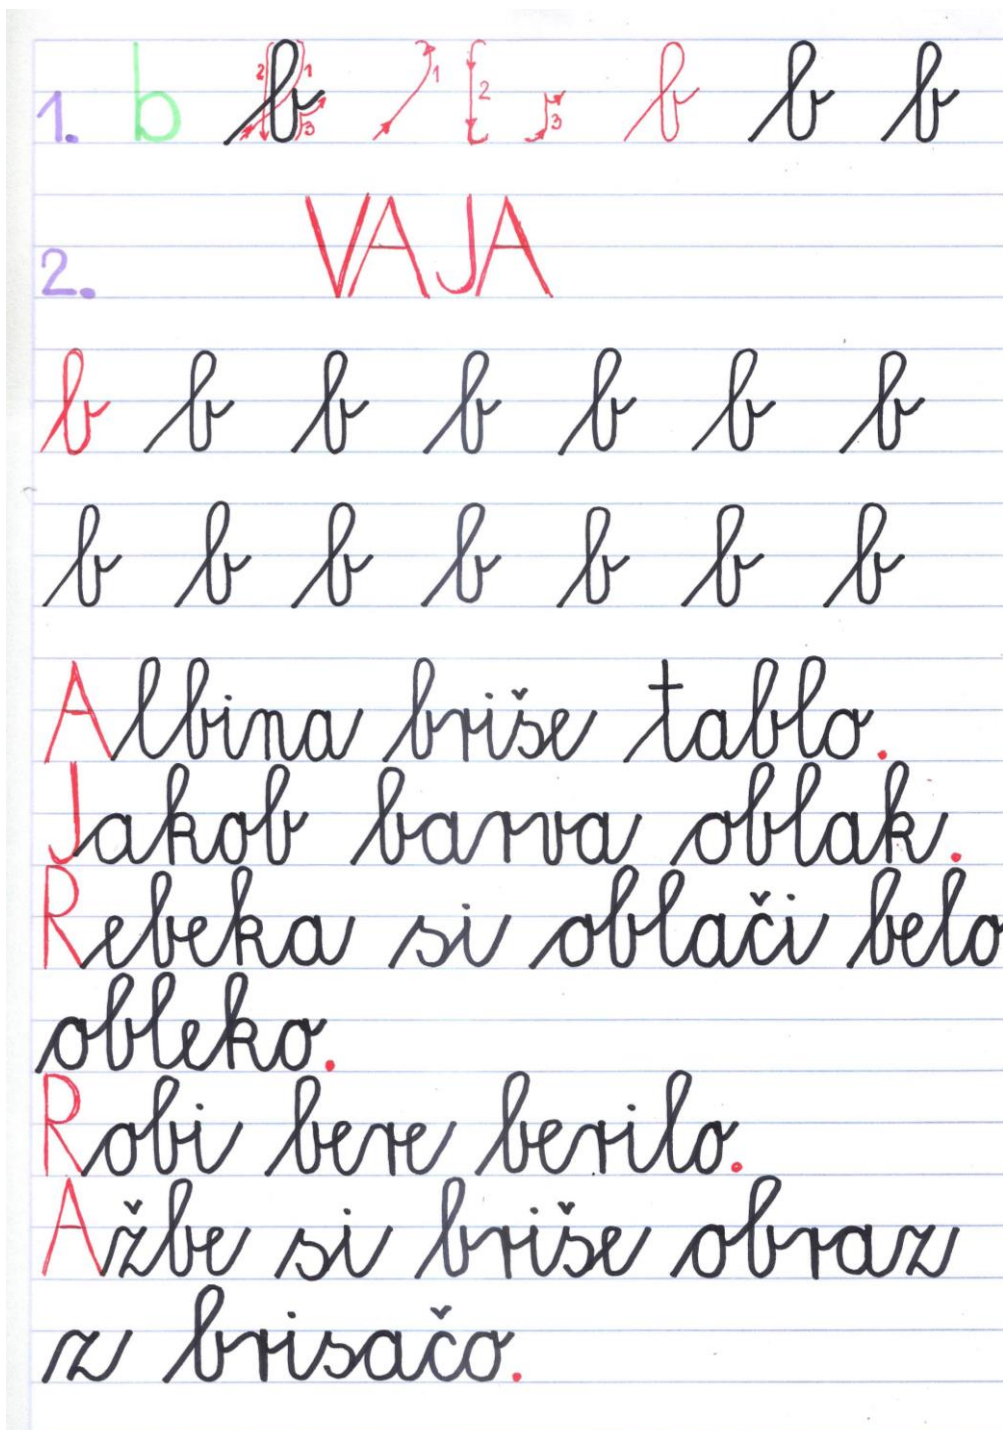 1. b b 2 1 3 1 2 3 b b b
2. VAJA
b b b b b b b
b b b b b b b
Albina briše tablo.
Jakob barva oblak.
Rebeka si oblači belo
obleko.
Robi bere berilo.
Ažbe si briše obraz
z brisačo.